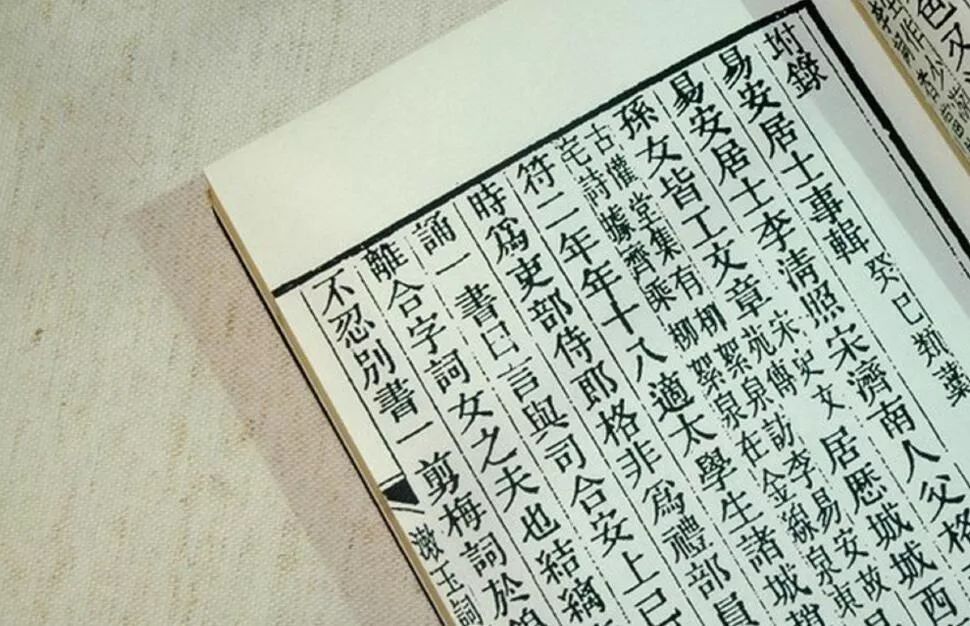 坿錄
易安居士事輯 癸巳類藁
易安居士李淸照宋濟南人父格
孫女皆工文章宋史文苑傳居歷城城西
古懽堂集有柳絮泉訪李易安故
宅詩據齊乘柳絮泉在金線泉東
符二年年十八適太學生諸城趙
時爲吏部侍郎格非爲禮部員
誦一書曰言與司合安上已
離合字詞女之夫也結縭
不忍別書一剪梅詞於錦
漱玉詞